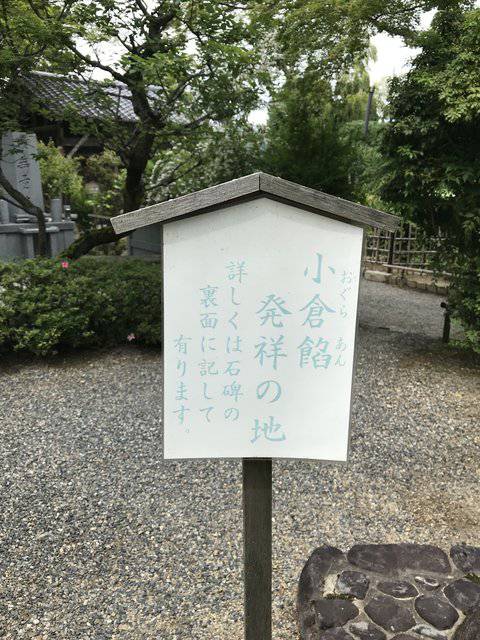 小倉餡
おぐら あん
発祥の地
詳しくは石碑の
裏面に記して
有ります。